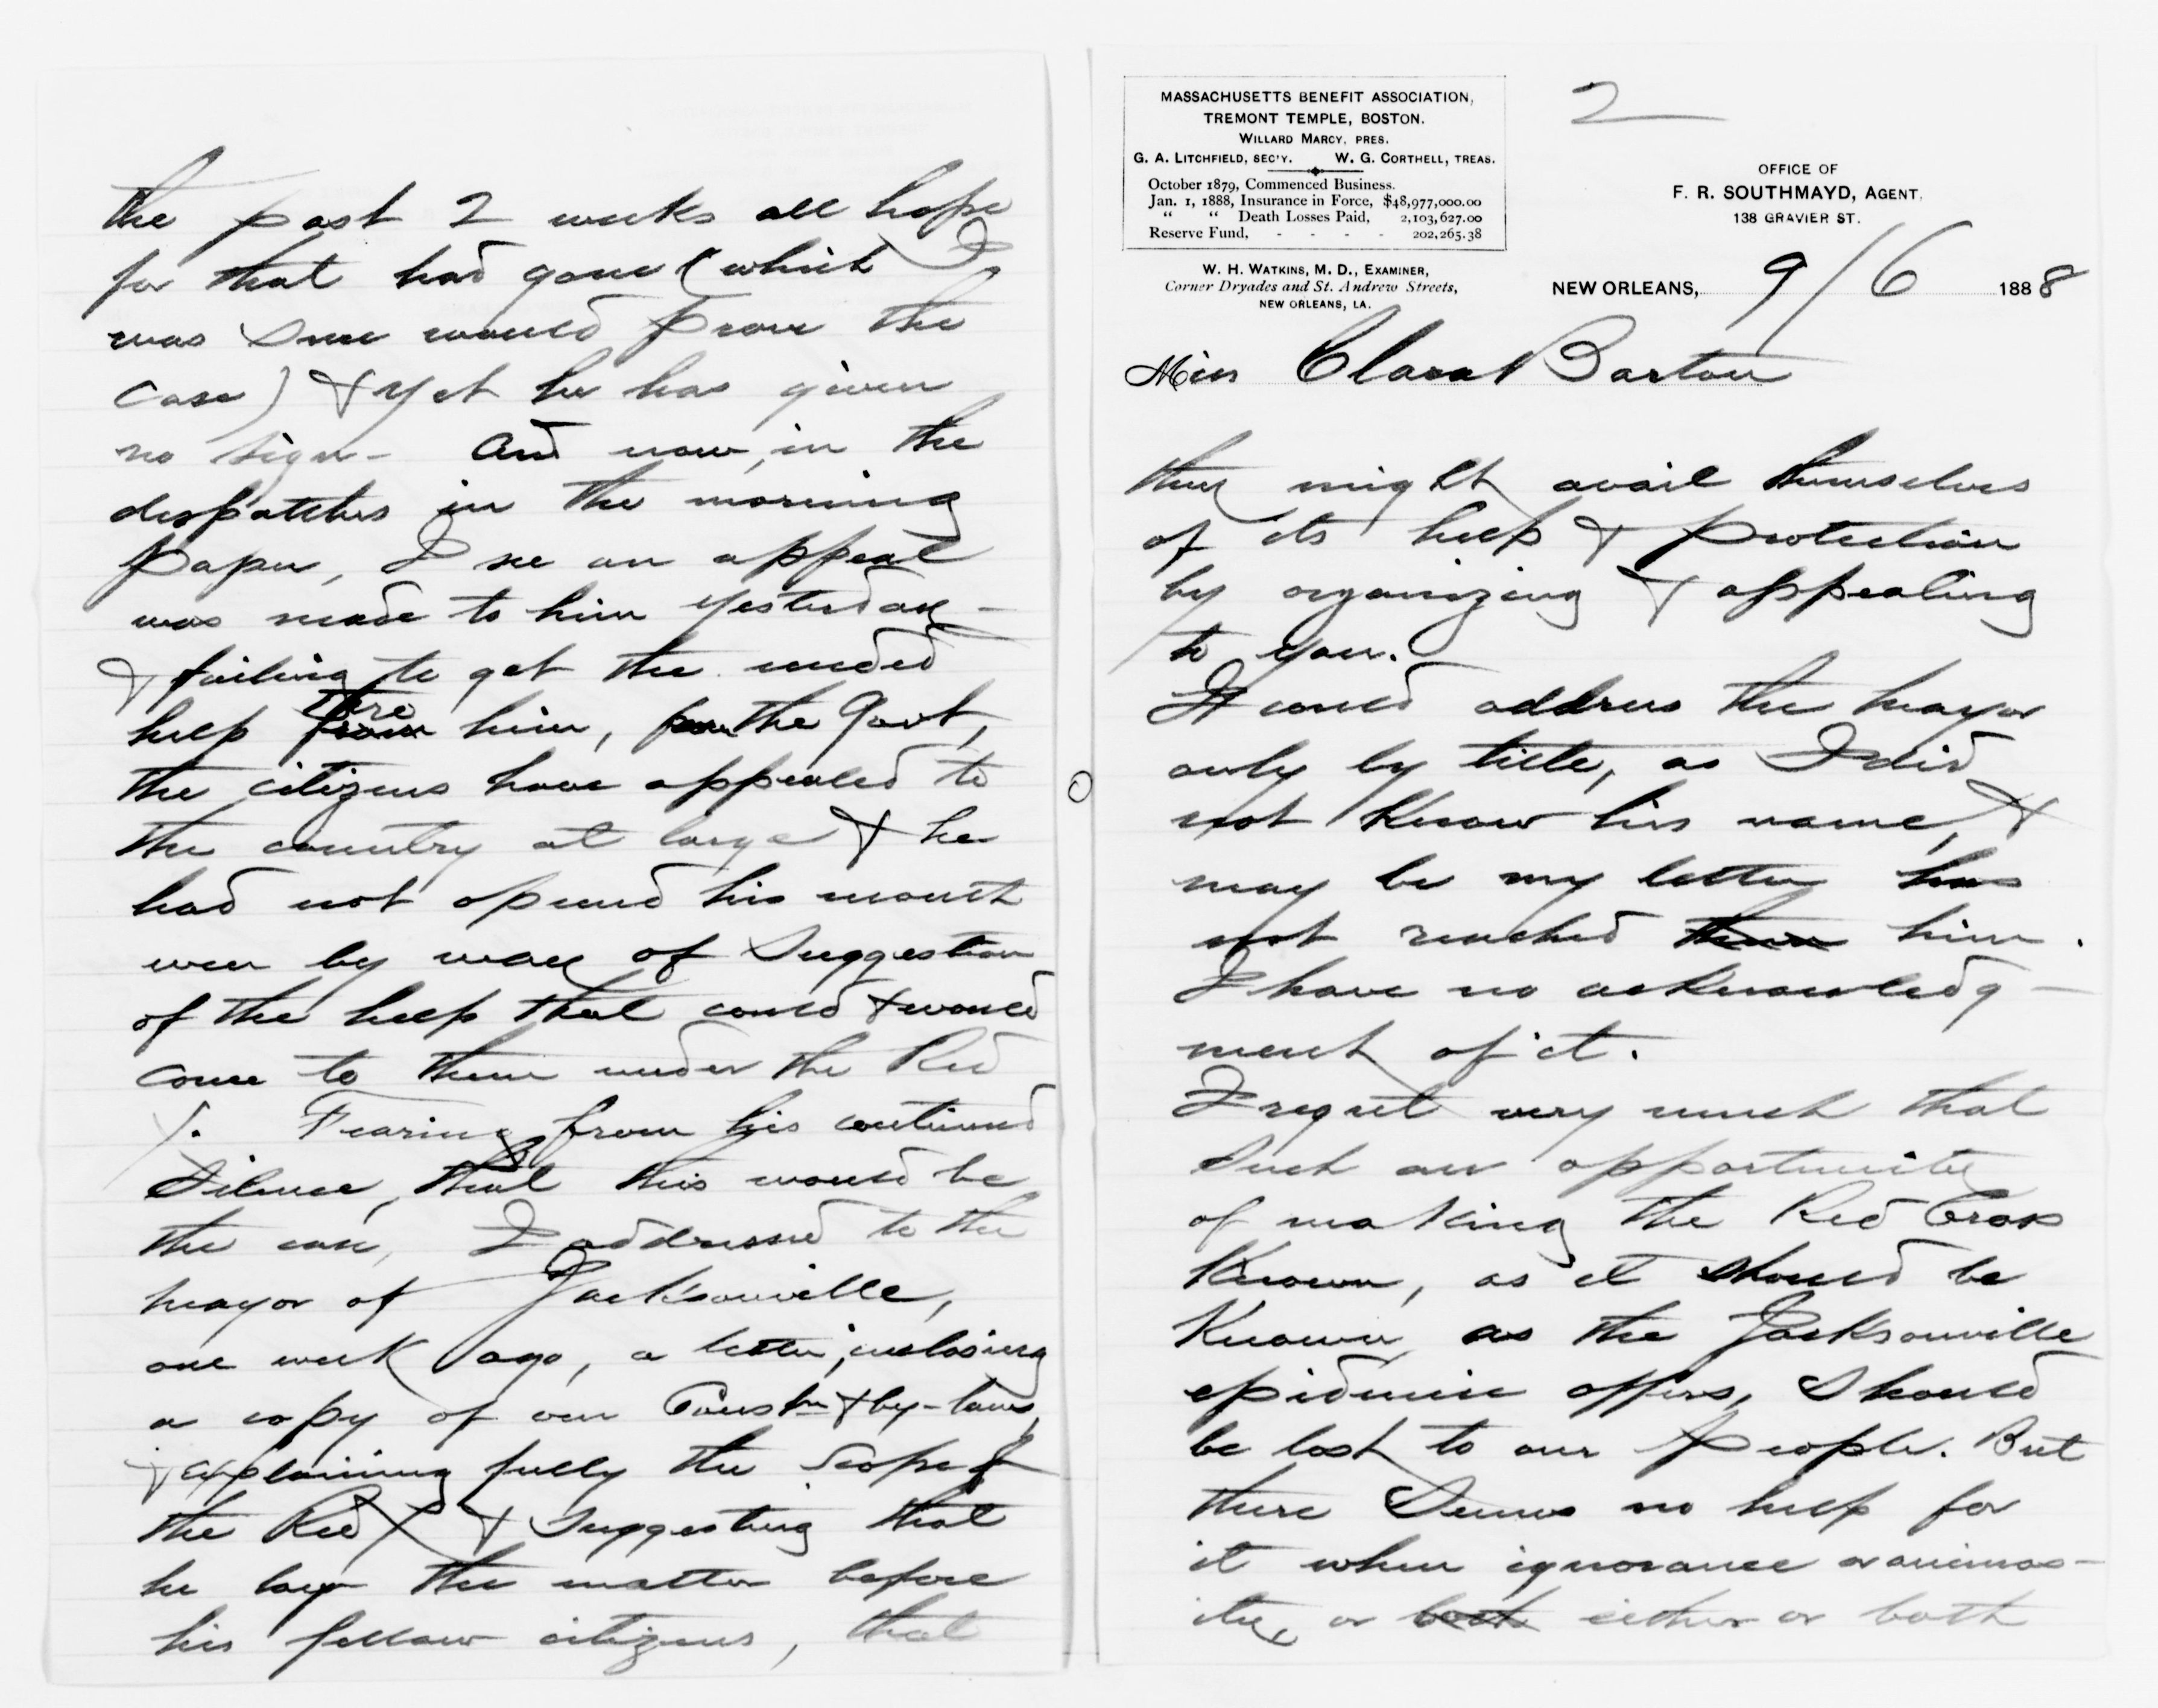 the past 2 weeks all hope
for that had gone (which I
was sure would prove the
case) & yet he has given
no sign - And now, in the
despatches in the morning
paper, I see an appeal
was made to him yesterday -
& failing to get the needed
help from thro him, from the Govt,
the citizens have appealed to
the country at large & he
had not opened his mouth
even by way of suggestion
of the help that could & would
come to them under the Red
X. Fearing from his continued
silence, that this would be
the case, I addressed to the
mayor of Jacksonville,
one week ago, a letter, inclosing
a copy of our Constn & by-laws,
& explaining fully the scope of
the Red X & suggesting that
he lay the matter before
his fellow citizens, that
MASSACHUSETTS BENEFIT ASSOCIATION,
TREMONT TEMPLE, BOSTON.
WILLARD MARCY, PRES.
G. A. LITCHFIELD, SEC'Y. W. G. CORTHELL, TREAS.
October 1879, Commenced Business.
Jan. 1, 1888, Insurance in Force, $48,977,000.00
" " Death Losses Paid, 2,103,627.00
Reserve Fund, - - - - 202,265.38
W. H. WATKINS, M. D., EXAMINER,
Corner Dryades and St. Andrew Streets,
NEW ORLEANS, LA.
2
OFFICE OF
F. R. SOUTHMAYD, AGENT,
138 GRAVIER ST.
NEW ORLEANS, 9/6 1888
Miss Clara Barton
they might avail themselves
of its help & protection
by organizing & appealing
to you.
I could address the mayor
only by title, as I did
not know his name, &
may be my letter has
not reached them him.
I have no acknowledg-
ment of it.
I regret very much that
such an opportunity
of making the Red Cross
known, as it should be
known, as the Jacksonville
epidemic offers, should
be lost to our people. But
there seems no help for
it when ignorance or animos-
ity, or both either or both